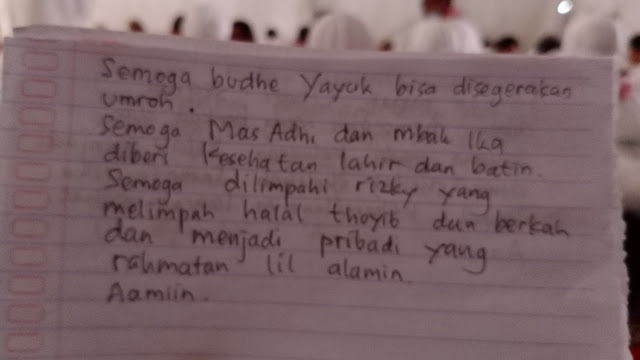 Semoga budhe Yayuk bisa disegerakan
umroh.
Semoga Mas Adhi dan mbak Ika
diberi kesehatan lahir dan batin.
Semoga dilimpahi rizky yang
melimpah halal thoyib dan berkah
dan menjadi pribadi yang
rahmatan lil alamin.
Aamiin.